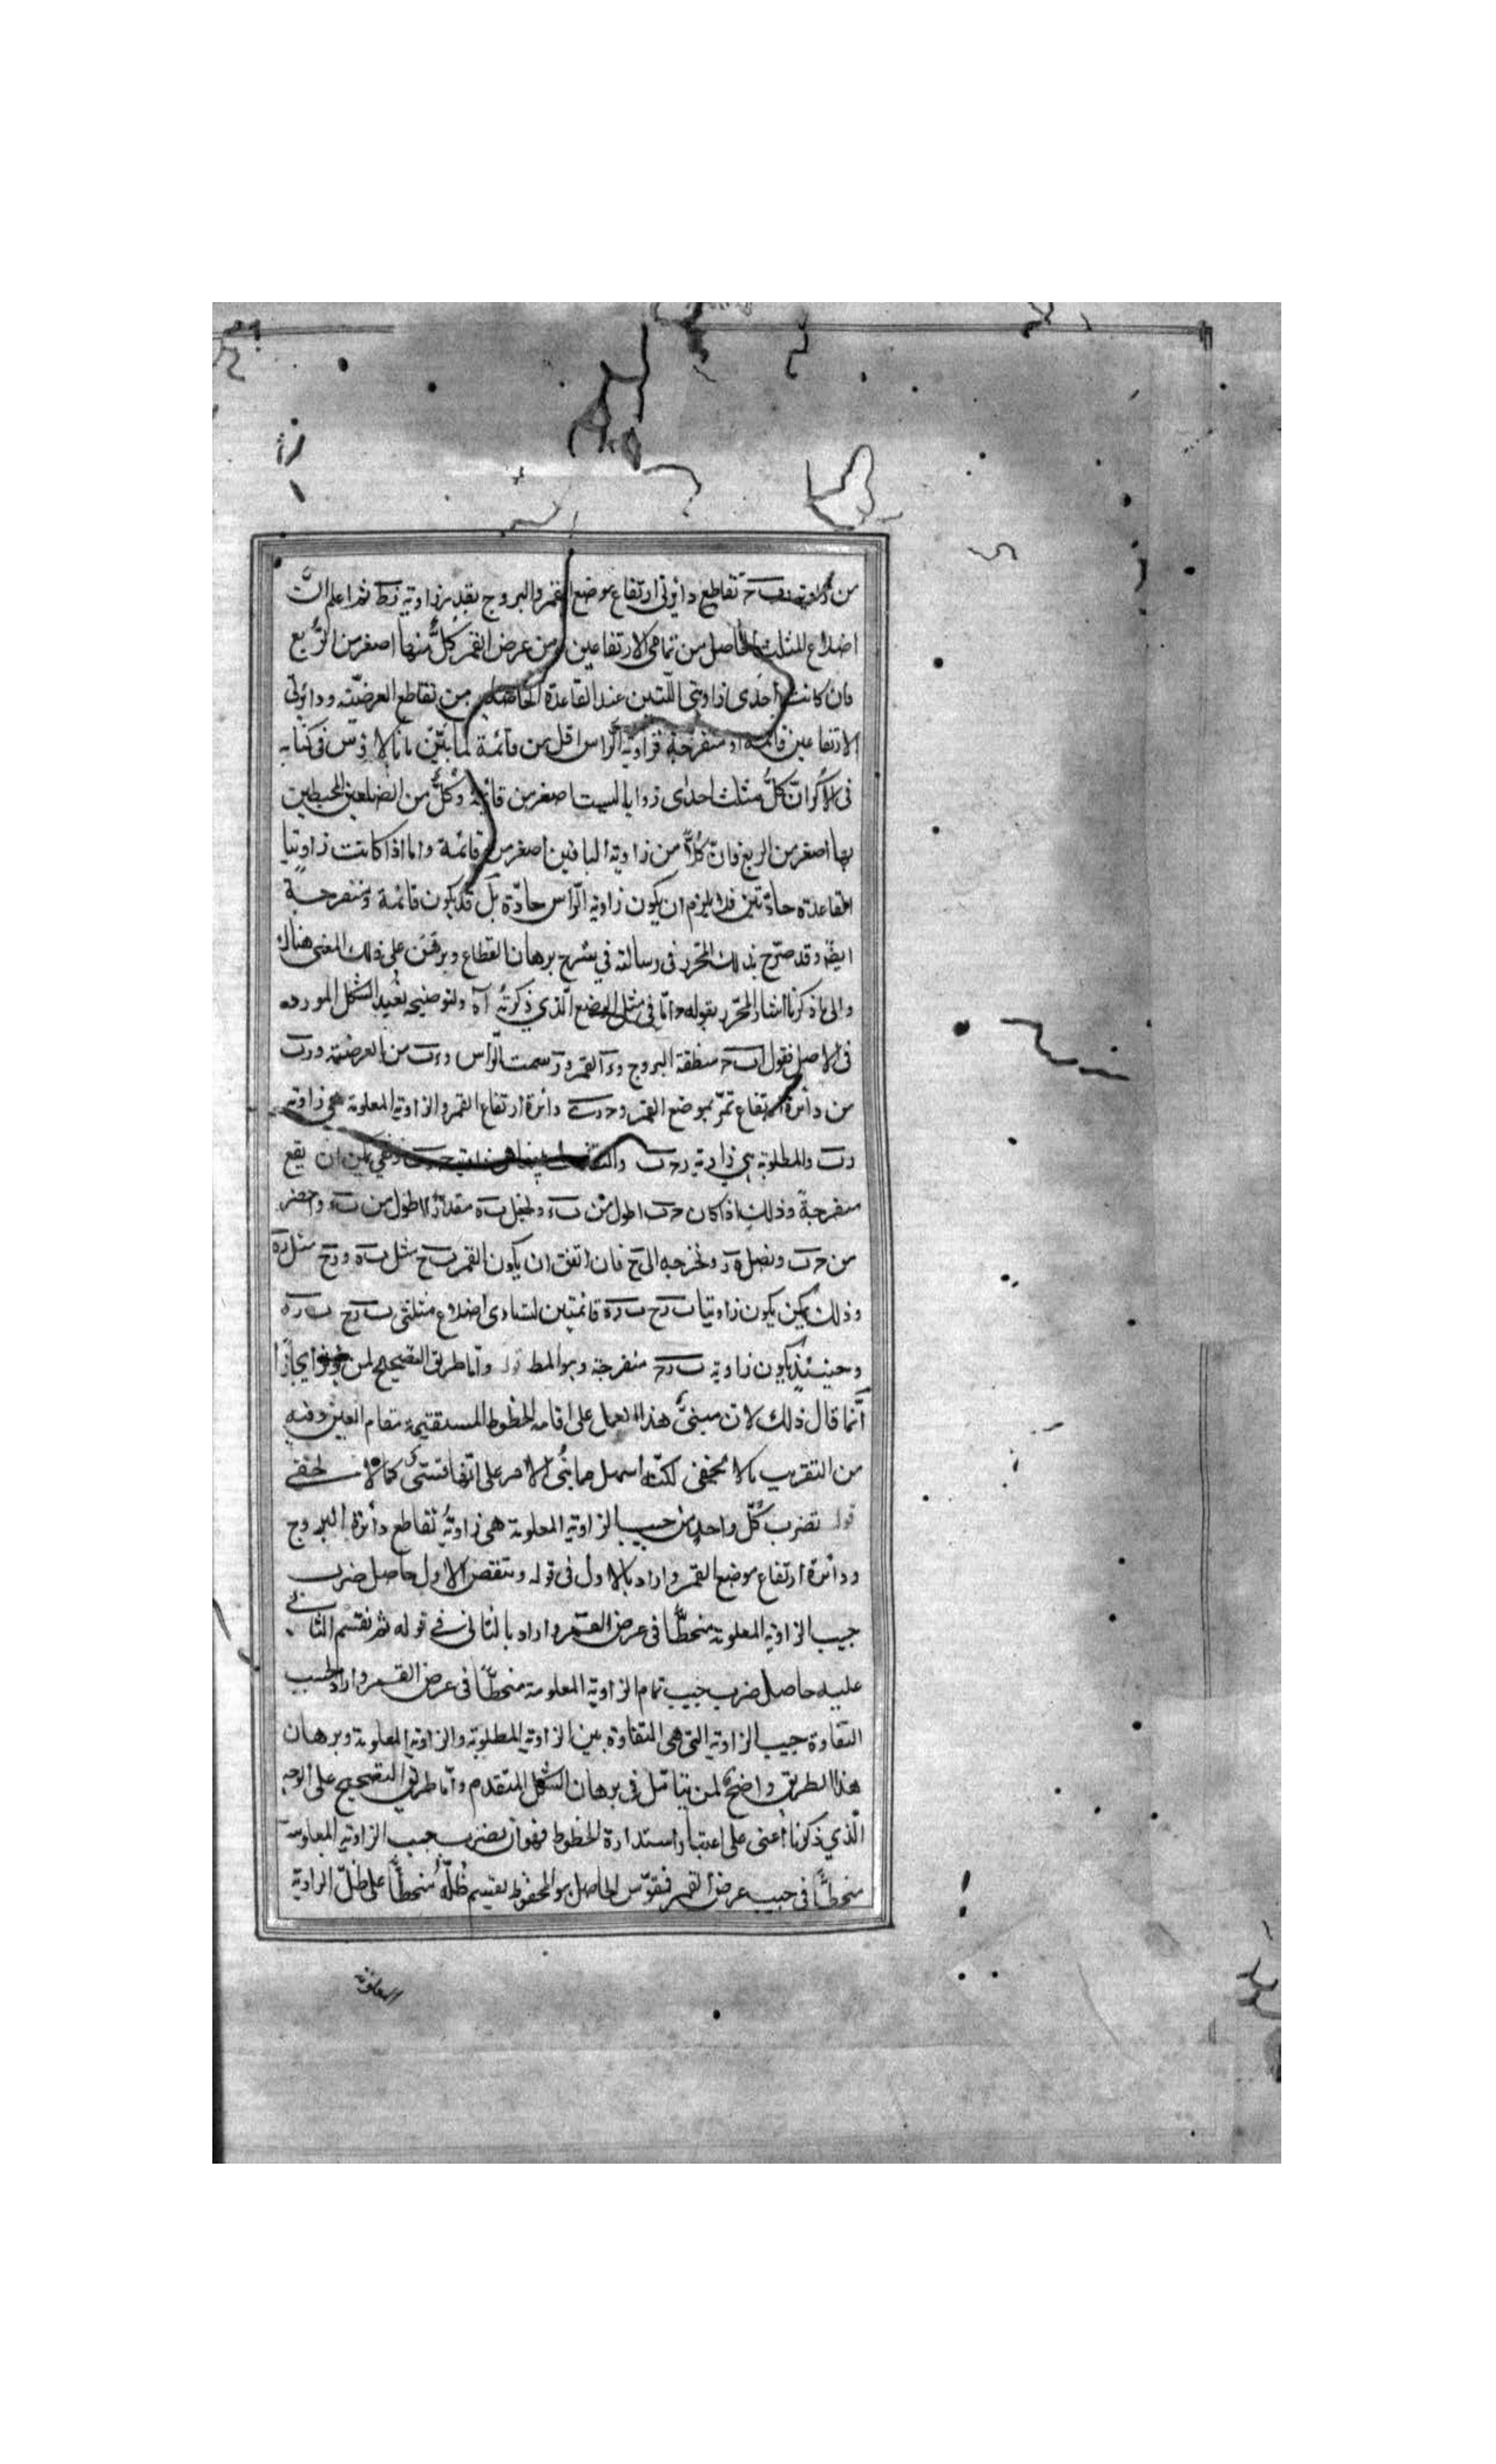 من زاوية تقاطع دائرتي ارتفاع موضع القمر والبروج بقدر زاوية زط ثم اعلم انّ
اضلاع المثلث الحاصل من تمامي الارتفاعين ومن عرض القمر كلٌّ منها اصغر من الرُّبع
فان كانت احدى زاويتي اللّتين عند القاعدة الحاصلة من تقاطع العرضيّة ودائرتي
الارتفاعين قائمة او منفرجة فزاوية الرّاس اقل من قائمة لما بيّن مانالاوس في كتابه
في الاكر انّ كلّ مثلث احدى زواياه ليست اصغر من قائمة وكلٌّ من الضلعين المحيطين
بها اصغر من الربع فانّ كلاًّ من زاويته الباقيتين اصغر من قائمة واما اذا كانت زاويتا
القاعدة حادّتين فلا يلزم ان يكون زاوية الرّاس حادّة بل قد يكون قائمة ومنفرجة
ايضًا وقد صرّح بذلك المحرّر في رسالته في شرح برهان القطاع وبرهن على ذلك المعنى هناك
والى ما ذكرنا اشار المحرّر بقوله وامّا في مثل الوضع الّذي ذكرتُه آه ولتوضيحه نعيد الشكل المورده
في الاصل فنقول اب‌ح منطقة البروج وء القمر ور سمت الرّاس وءب من العرضيّة ورب
من دائرة ارتفاع تمرّ بموضع القمر وحرء دائرة ارتفاع القمر والزاوية المعلومة هي زاوية
رب والمطلوبة هي زاوية رحب والتفاضل بينهما هي زاوية حرب فهي يمكن ان يقع
منفرجة وذلك اذا كان حب اطول من بء ولنجعل به مقدارًا اطول من بء واخصر
من حب ونصل ور ونخرجه الى ح فان اتفق ان يكون القمر بح مثل به ورح مثل ره
وذلك يمكن يكون زاويتا برح بره قائمتين لتساوى اضلاع مثلثي برح بره
وحينئذٍ يكون زاوية برح منفرجة وهو المط قوله وامّا طريق التصحيح لمن ايجازًا
انّما قال ذلك لان مبنىّ هذا العمل على اقامة الخطوط المستقيمة مقام القسيّ وفيه
من التقريب ما لا يخفى لكنّه اسهل مما بُنى الامر على انّها قسيّ كما لا يخفى
قوله نضرب كلّ واحد من جيب الزاوية المعلومة هي زاوية تقاطع دائرة البروج
ودائرة ارتفاع موضع القمر واراد بالاول في قوله وننقص الاول حاصل ضرب
جيب الزاوية المعلومة منحطًّا في عرض القمر واراد بالثاني في قوله ثم نقسم الثاني
عليه حاصل ضرب جيب تمام الزاوية المعلومة منحطًّا في عرض القمر واراد بجيب
التفاوت جيب الزاوية التي هي المتفاوتة بين الزاوية المطلوبة والزاوية المعلومة وبرهان
هذا الطريق واضحٌ لمن يتامّل في برهان الشكل المتقدم وامّا طريق التصحيح على الوجه
الّذي ذكرنا اعنى على اعتبار استدارة الخطوط فهو ان نضرب جيب الزاوية المعلومة
منحطًّا في جيب عرض القمر فنقوّس الحاصل هو المحفوظ نقسم ظلّه منحطًّا على ظلّ الزاوية
المعلومة